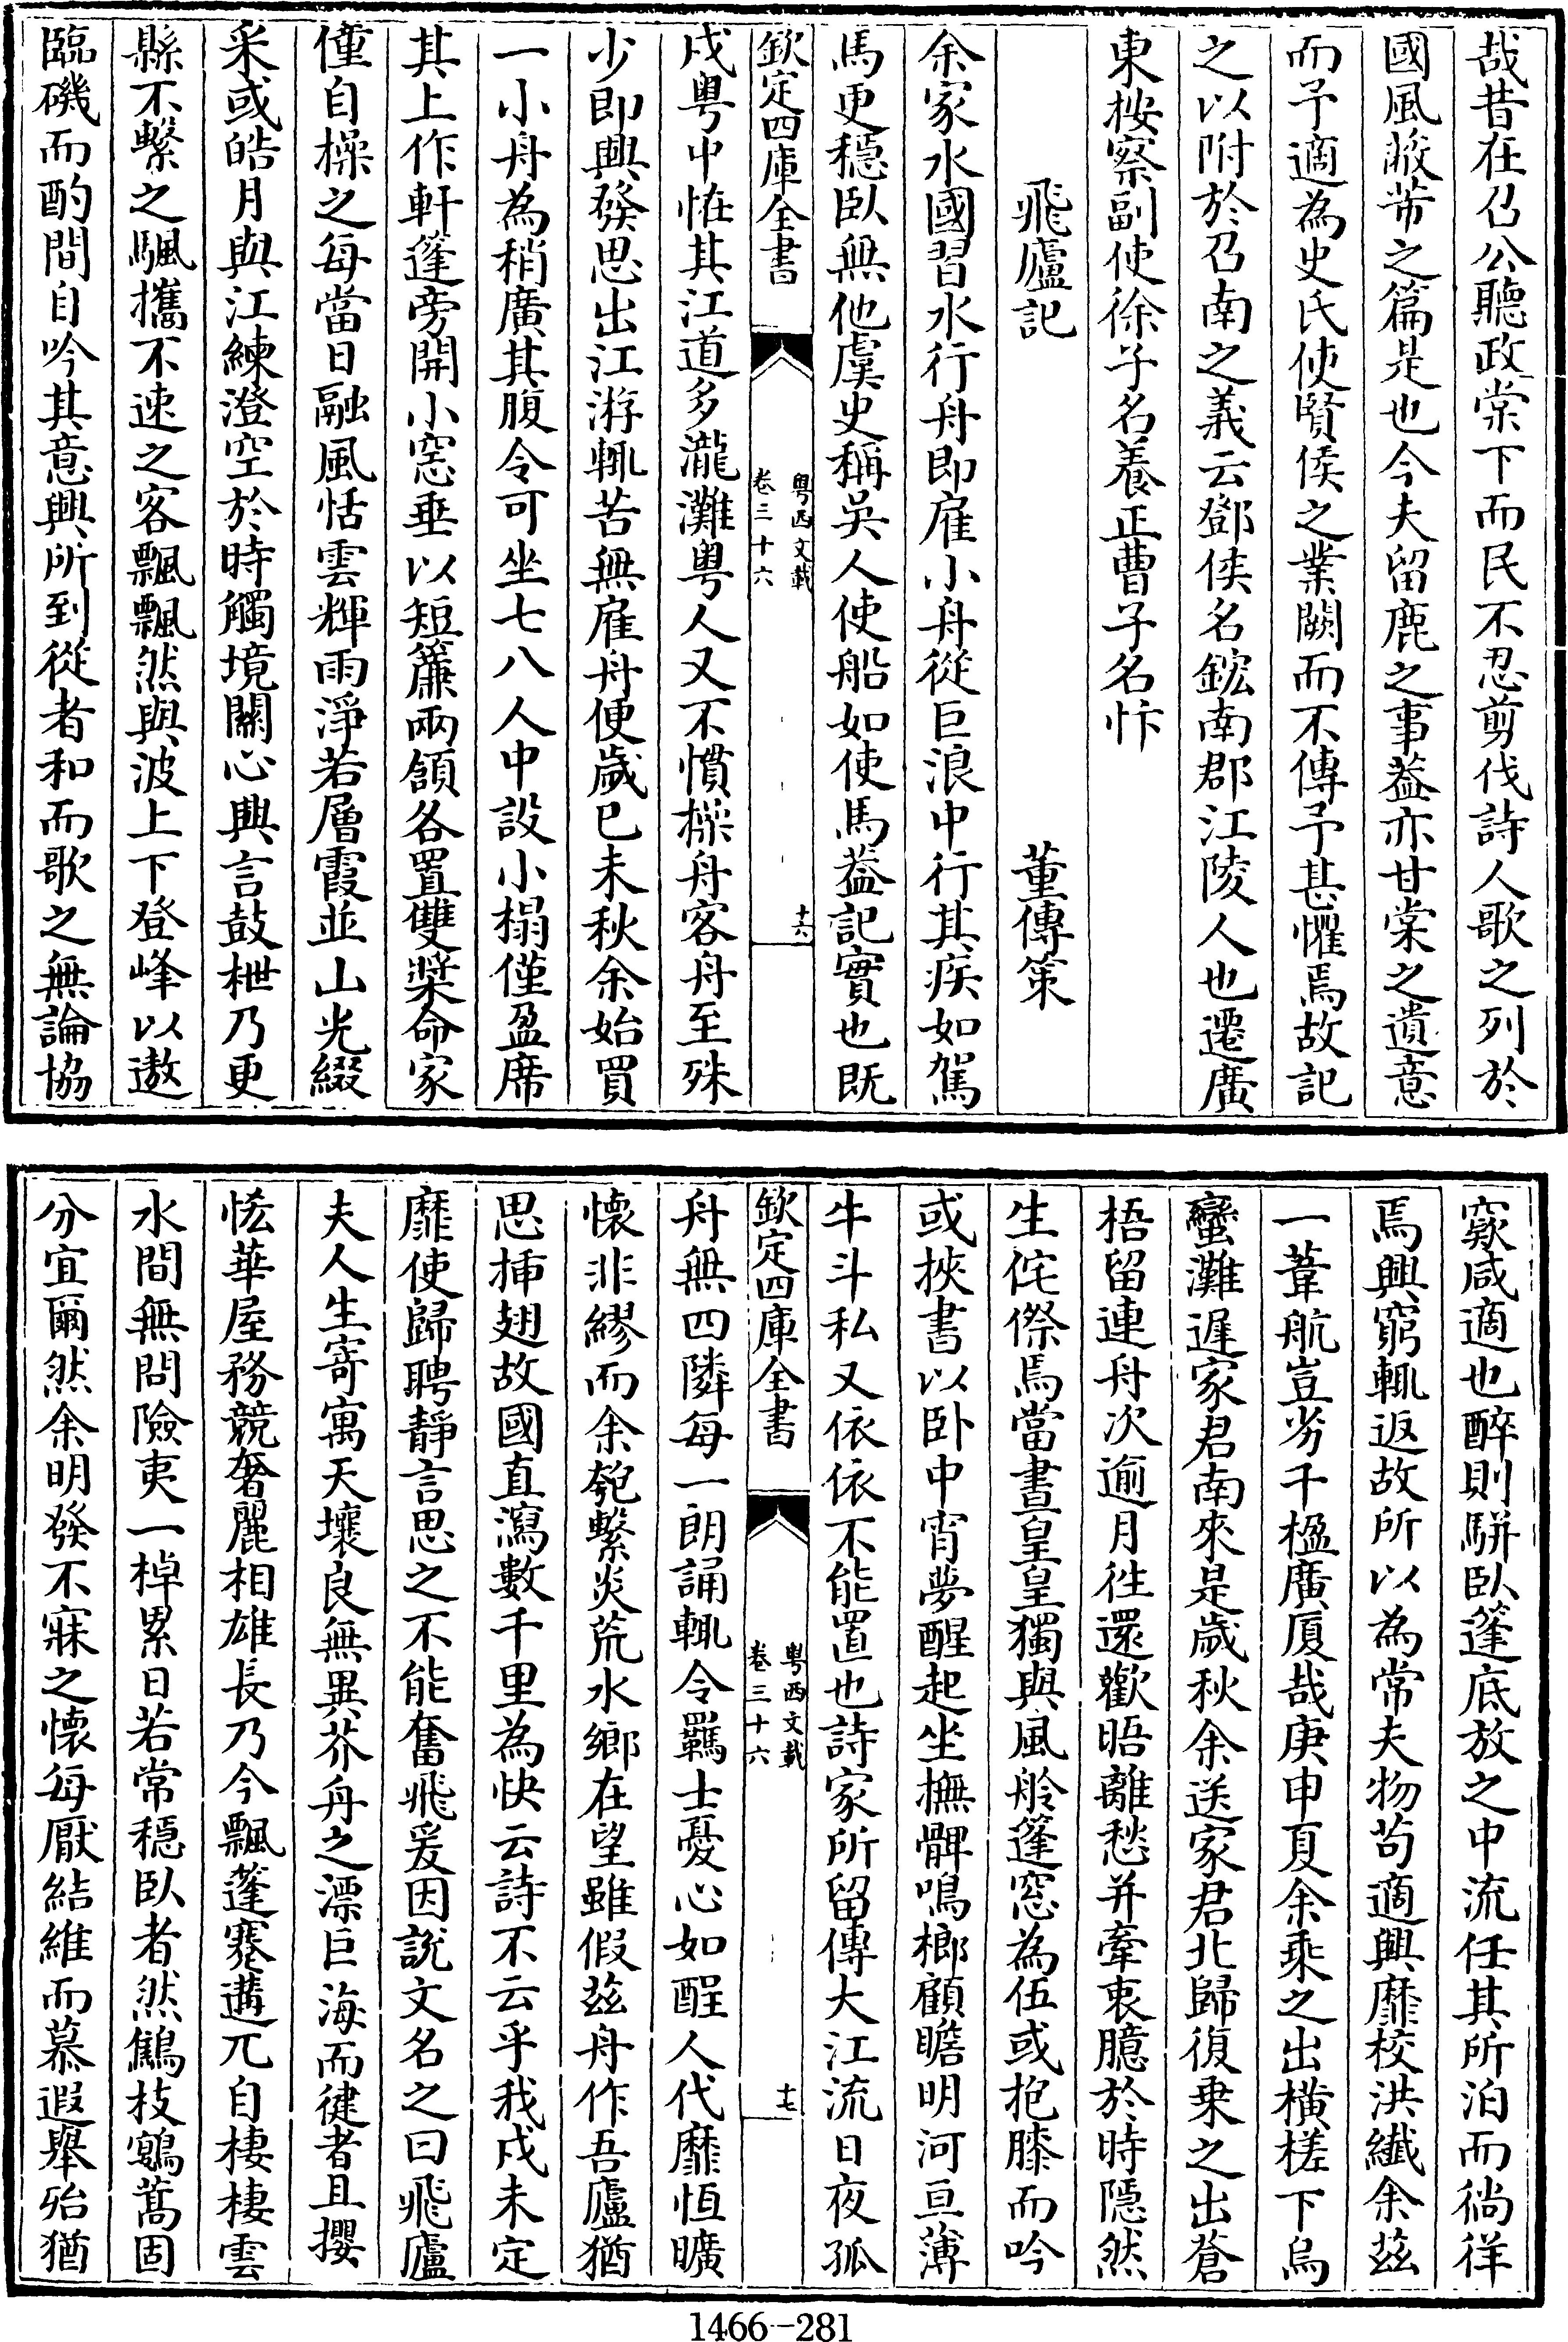 哉昔在召公聽政棠下而民不忍剪伐詩人歌之列於
國風蔽芾之篇是也今夫留鹿之事葢亦甘棠之遺意
而予適為史氏使賢侯之業闕而不傳予甚懼焉故記
之以附於召南之義云鄧侯名鋐南郡江陵人也遷廣
東按察副使徐子名養正曹子名忭
飛廬記　董傳策
余家水國習水行舟即雇小舟從巨浪中行其疾如駕
馬更穩臥無他虞史稱吳人使船如使馬葢記實也既
欽定四庫全書　粵西文載卷三十六　十六
戍粵中恠其江道多瀧灘粵人又不慣櫂舟客舟至殊
少即興發思出江游輒苦無雇舟便歲已未秋余始買
一小舟為稍廣其腹令可坐七八人中設小榻僅盈席
其上作軒篷旁開小窓垂以短簾兩頷各置雙槳命家
僮自操之每當日融風恬雲輝雨淨若層霞並山光綴
采或皓月與江練澄空於時觸境關心興言鼓枻乃更
縣不繫之颿攜不速之客飄飄然與波上下登峰以遨
臨磯而酌間自吟其意興所到從者和而歌之無論協
窾咸適也醉則駢臥篷底放之中流任其所泊而徜徉
焉興窮輒返故所以為常夫物苟適興靡校洪纖余茲
一葦航豈劣千楹廣厦哉庚申夏余乘之出橫槎下烏
蠻灘遲家君南來是歲秋余送家君北歸復乗之出蒼
梧留連舟次逾月徃還歡晤離愁并牽衷臆於時隱然
生侘傺焉當晝皇皇獨與風舲篷窓為伍或抱膝而吟
或挾書以卧中宵夢醒起坐撫髀鳴榔顧瞻明河亘薄
牛斗私又依依不能置也詩家所留傳大江流日夜孤
欽定四庫全書　粵西文載卷三十六　十七
舟無四隣每一朗誦輒令羈士憂心如酲人代靡恒曠
懷非繆而余匏繫炎荒水鄉在望雖假茲舟作吾廬猶
思揷翅故國直瀉數千里為快云詩不云乎我戍未定
靡使歸聘靜言思之不能奮飛爰因說文名之曰飛廬
夫人生寄寓天壤良無異芥舟之漂巨海而徤者且攖
恡華屋務競奢麗相雄長乃今飄蓬蹇遘兀自棲棲雲
水間無問險夷一棹累日若常穩臥者然鷦枝鷃蒿固
分宜爾然余明發不寐之懷每厭結維而慕遐舉殆猶
1466-281